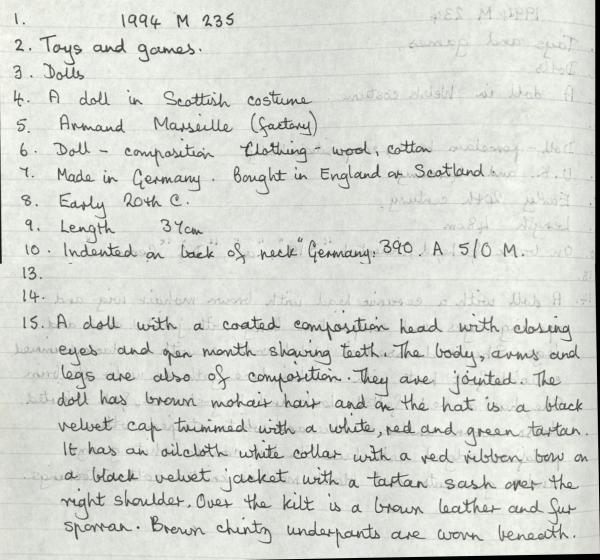 1. 1994 M 235
2. Toys and games.
3. Dolls
4. A doll in Scottish costume
5. Armand Marseille (factory)
6. Doll - composition Clothing - wool, cotton
7. Made in Germany. Bought in England or Scotland.
8. Early 20th C.
9. Length 37cm
10. Indented on back of neck "Germany. 390. A 5/0 M.
13.
14.
15. A doll with a coated composition head with closing
eyes and open mouth showing teeth. The body, arms and
legs are also of composition. They are jointed. The
doll has brown mohair hair and on the hat is a black
velvet cap trimmed with a white, red and green tartan.
It has an oilcloth white collar with a red ribbon bow on
a black velvet jacket with a tartan sash over the
right shoulder. Over the kilt is a brown leather and fur
sporran. Brown chintz underpants are worn beneath.